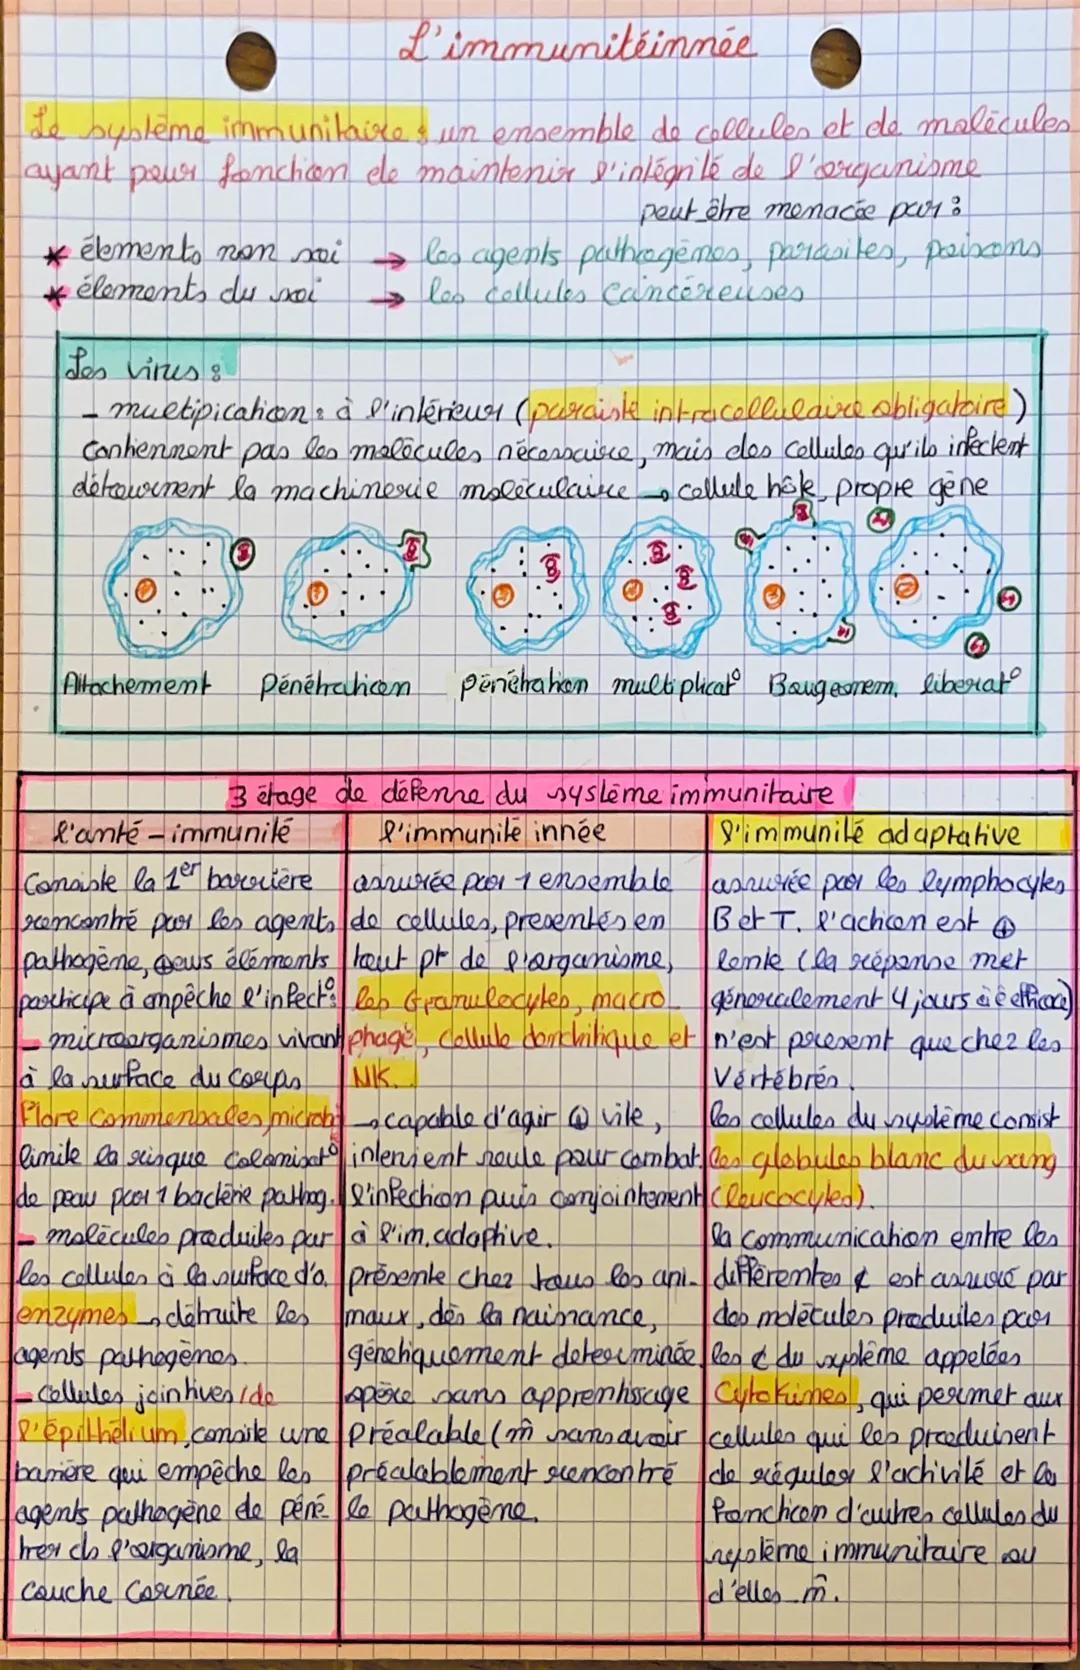 L'immunitéinnée
Le système immunitaire : un ensemble de cellules et de molécules
ayant pour fonction de maintenir l'intégrité de l'organisme
peut être menacée par :
* élements non soi → les agents pathogènes, parasites, poisons
* élements du soi → les cellules cancéreuses
Les virus :
- multipication : à l'intérieur (parasite intracellulaire obligatoire)
contiennent pas les molécules nécessaire, mais des cellules qu'ils infectent
détournent la machinerie moléculaire → cellule hôte, propre gène
Attachement Pénétration pénétration multiplicat° Bougeonnem. liberat°
3 étage de défense du système immunitaire
l'anté-immunité
Consiste la 1er barrière
rencontré par les agents
pathogène, ⊕eurs éléments
participe à empêche l'infect° :
- microorganismes vivant
à la surface du corps
Flore commensales, microbi
limite la risque colonisat°
de peau par 1 bactérie pathog.
- molécules produites par
les cellules à la surface d'o.
enzymes → détruite les
agents pathogènes.
- cellules jointives / de
l'épithélium, consite une
barrière qui empêche les
agents pathogène de péné-
trer ds l'organisme, la
couche cornée.
l'immunité innée
assurée par 1 ensemble
de cellules, presentés en
tout pt de l'organisme,
les Granulocytes, macro
phage, cellule dendritique et
NK.
→ capable d'agir ⊕ vite,
intervient seule pour combat.
l'infection puis conjointement
à l'im. adaptive.
présente chez tous les ani-
maux, dès la naissance,
génétiquement determinée
opère sans apprentissage
Préalable (m̂ sans avoir
préalablement rencontré
le pathogène.
l'immunité adaptative
assurée par les lymphocytes
B et T. l'action est ⊕
lente (la réponse met
généralement 4 jours à ê efficace)
n'est present que chez les
Vértébrés.
les cellules du système consist
les globules blanc du sang
(leucocytes).
la communication entre les
différentes ¢ est assuré par
des molécules produites par
les ¢ du système appelées
Cytokines, qui permet aux
cellules qui les produisent
de réguler l'activité et la
fonction d'autres cellules du
système immunitaire ou
d'elles m̂.